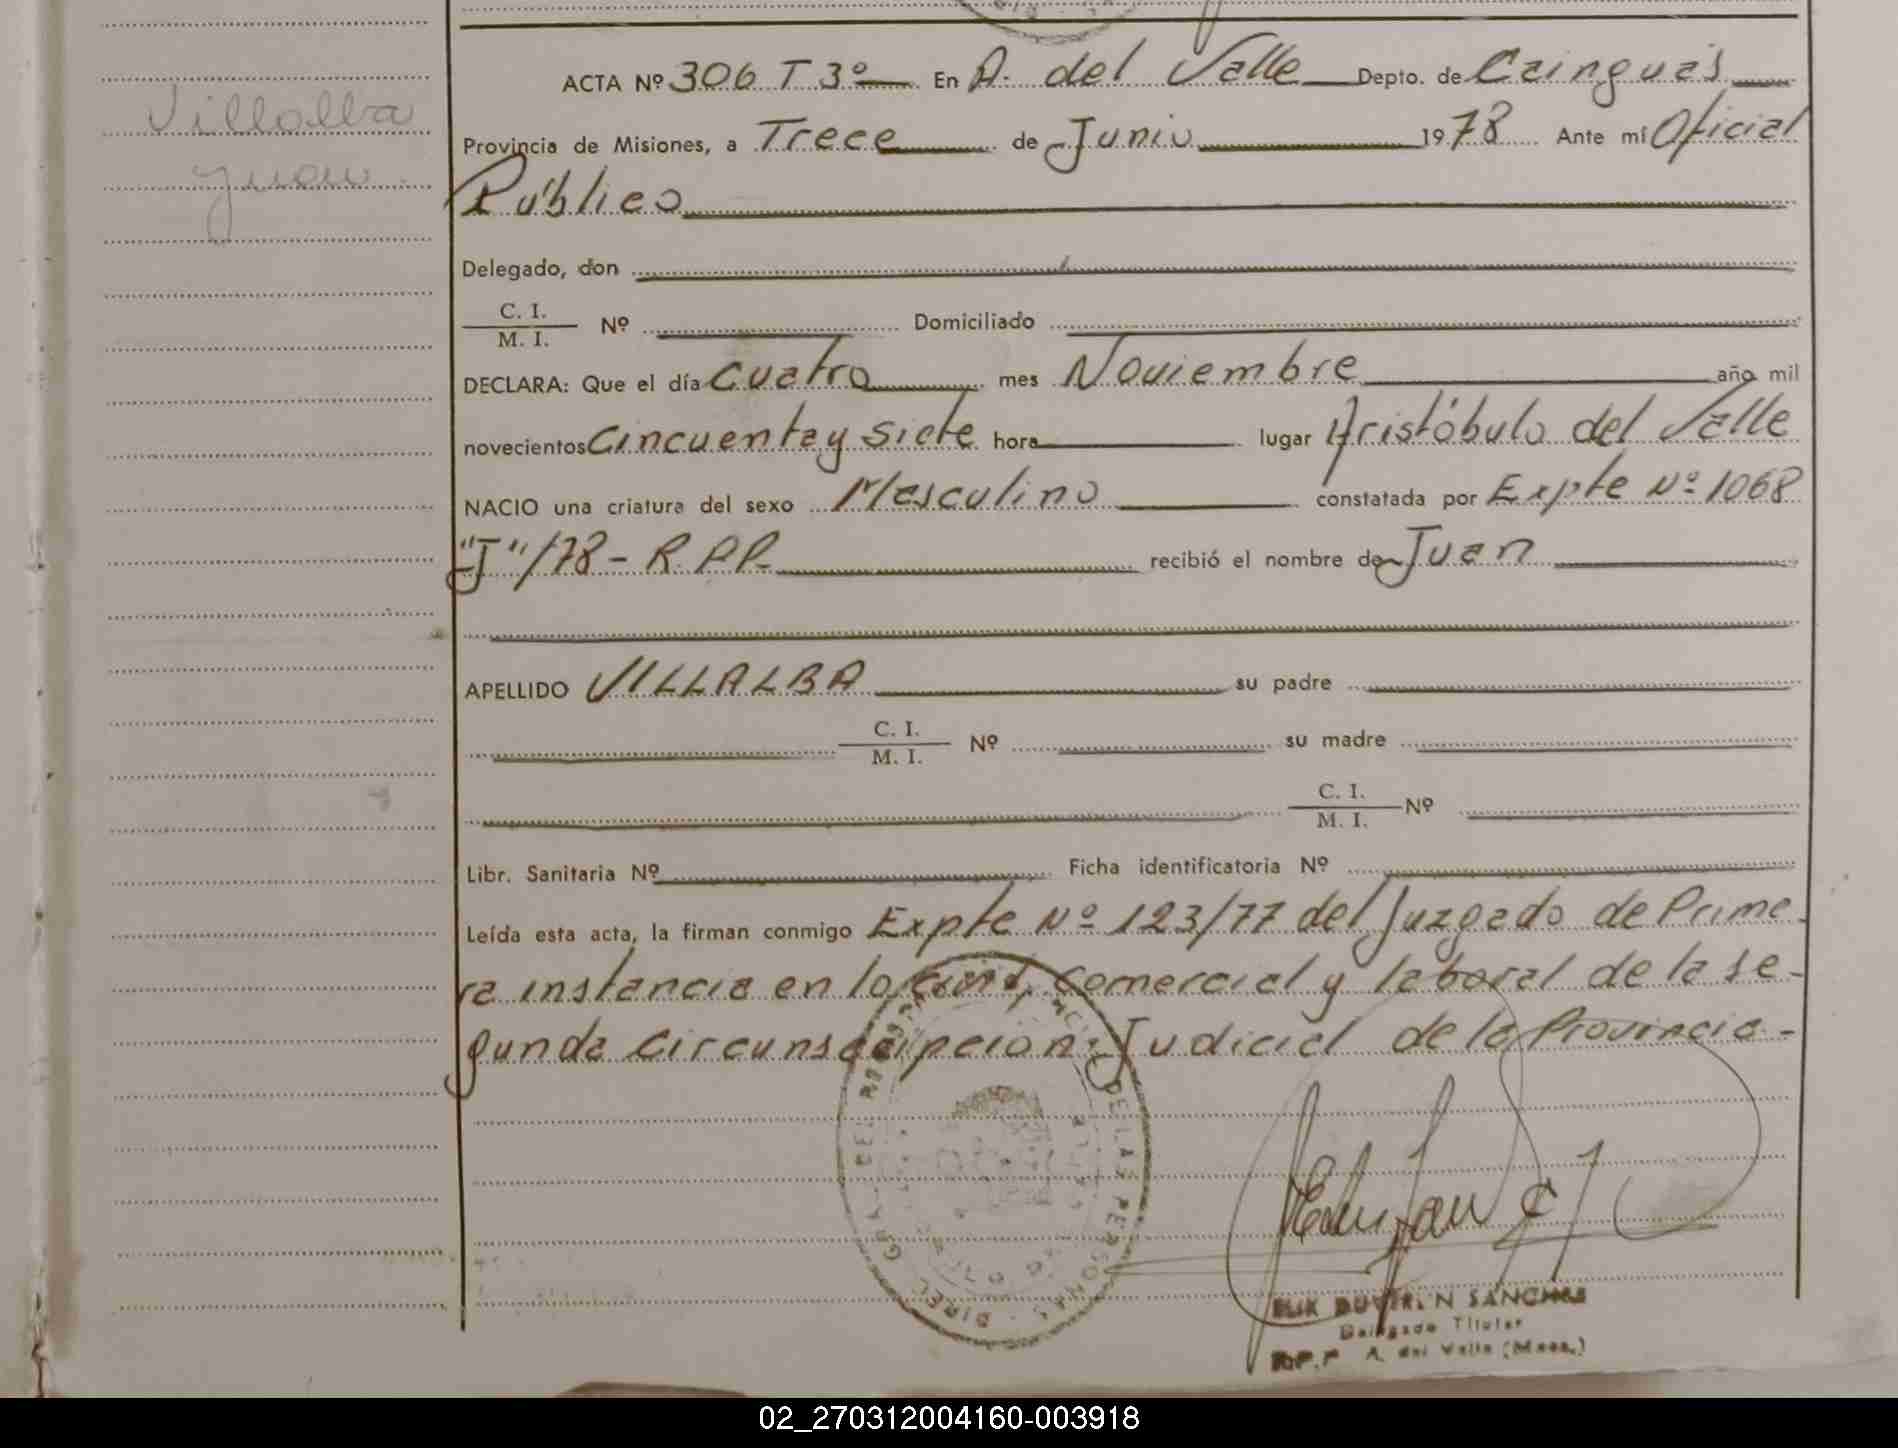 Villalba
Juan
ACTA Nº 306 T 3º En A. del Valle Depto. de Cainguás
Provincia de Misiones, a Trece de Junio 1978 Ante mí Oficial
Público
Delegado, don
C. I.
M. I. Nº Domiciliado
DECLARA: Que el día cuatro mes Noviembre año mil
novecientos Cincuenta y siete hora lugar Aristóbulo del Valle
NACIO una criatura del sexo Masculino constatada por Expte Nº 1068
"J"/78 - R.P.P. recibió el nombre de Juan
APELLIDO VILLALBA su padre
C. I.
M. I. Nº su madre
C. I.
M. I. Nº
Libr. Sanitaria Nº Ficha identificatoria Nº
Leída esta acta, la firman conmigo Expte Nº 123/77 del Juzgado de Prime-
ra instancia en lo civil, comercial y laboral de la se-
gunda Circunscripción Judicial de la Provincia-
DE LAS PERSONAS
SANCHEZ
Delegado Titular
R.P.P. A. del Valle (Mnes.)
02_270312004160-003918